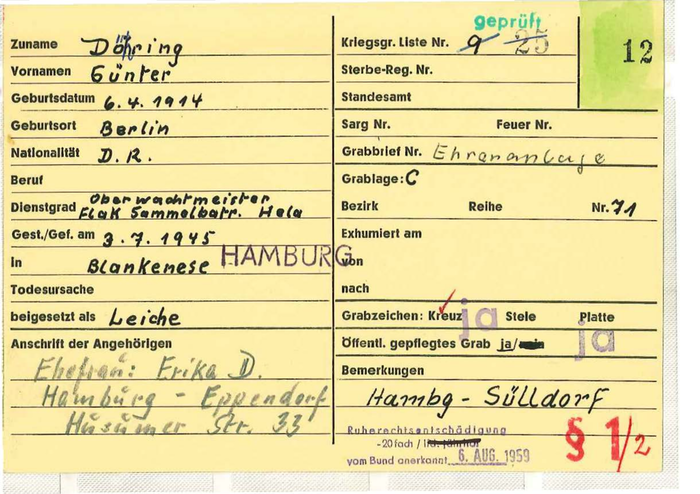 geprüft
Zuname Döhring
Vornamen Günter
Geburtsdatum 6.4.1914
Geburtsort Berlin
Nationalität D.R.
Beruf
Dienstgrad Oberwachtmeister
Flak Sammelbatr. Hela
Gest./Gef. am 3.7.1945
in Blankenese HAMBURG
Todesursache
beigesetzt als Leiche
Anschrift der Angehörigen
Ehefrau: Erika D.
Hamburg - Eppendorf
Husumer Str. 33
Kriegsgr. Liste Nr. 9 25
12
Sterbe-Reg. Nr.
Standesamt
Sarg Nr. Feuer Nr.
Grabbrief Nr. Ehrenanlage
Grablage: C
Bezirk Reihe Nr. 71
Exhumiert am
von
nach
Grabzeichen: Kreuz ja Stele Platte
Öffentl. gepflegtes Grab ja/nein ja
Bemerkungen
Hambg - Sülldorf
Ruherechtsentschädigung
-20fach / lfd. jährlich
vom Bund anerkannt 6. AUG. 1959
§ 1/2